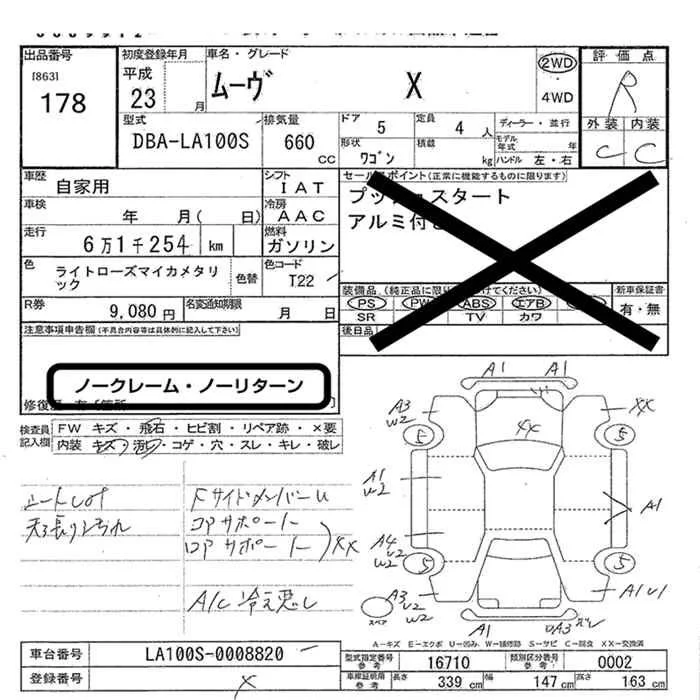 出品番号
[863]
178
初度登録年月
平成
23 月
車名・グレード
ムーヴ X
2WD
4WD
評価点
R
外装 内装
C C
型式
DBA-LA100S
排気量
660
CC
ドア 5
定員 4 人
形状
ワゴン
積載
kg
ディーラー・並行
モデル
年式 年
ハンドル 左・右
車歴
自家用
シフト
IAT
車検
年 月( 日)
冷房
AAC
走行
6万1千254 km
燃料
ガソリン
色
ライトローズマイカメタリ
ック
色替
色コード
T22
R券
9,080円
名変通知期限
月 日
セールスポイント(正常に機能するものに限ります)
スタート
アルミ付き
装備品
PS PW ABS エアB
SR TV カワ
後日品
新車保証書
有・無
注意事項申告欄(不具合内容等は具体的に記入して下さい)
ノークレーム・ノーリターン
検査員
記入欄
FW キズ・飛石・ヒビ割・リペア跡・×要
内装 キズ・汚レ・コゲ・穴・スレ・キレ・破レ
シートしOf
天張りよごれ
Fサイドメンバーu
コアサポート
ロアサポート
XX
A/C 冷え悪し
A1 A1
A3
W2
XX
XX
5 5
A1
U2
A1
A4
U2
W2
5 5
A3
U2
W2
A1U1
スペア
A1
A3
A-キズ E-エクボ U-凹み W-補修跡 S-サビ C-腐食 XX-交換済
車台番号
LA100S-0008820
登録番号
型式指定番号
参考
16710
類別区分番号
参考
0002
車庫証明用
参考
長さ
339 cm
幅
147 cm
高さ
163 cm